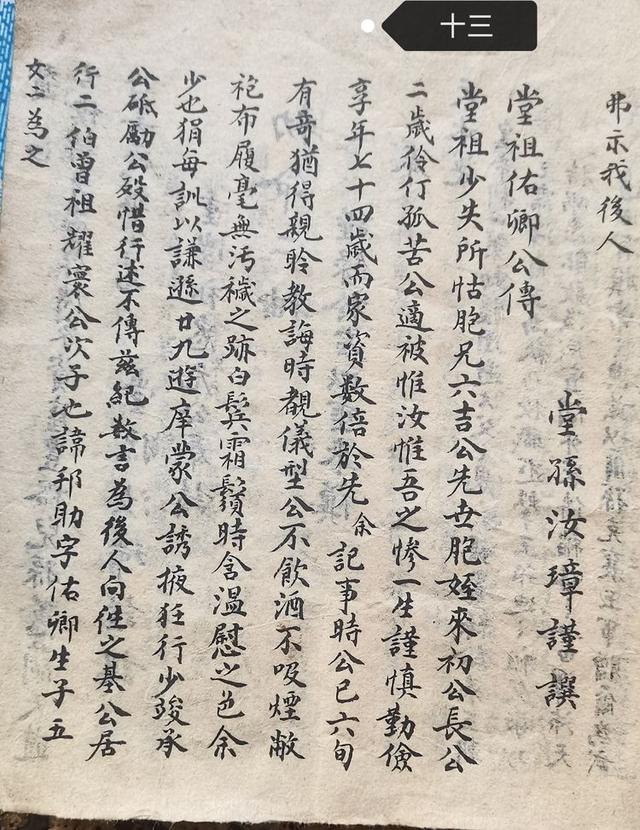 十三
弗示我後人
堂祖佑卿公傳
堂孫汝璋謹譔
堂祖少失所怙胞兄六吉公先世胞姪來初公長公
二歲伶仃孤苦公適被惟汝惟吾之慘一生謹慎勤儉
享年七十四歲而家資数倍於先余記事時公已六旬
有奇猶得親聆教誨時覩儀型公不飲酒不吸煙敝
袍布履毫無汚穢之跡白鬂霜鬚時含溫慰之色余
少也狷每訓以謙遜廿九遊庠蒙公誘掖狂行少竣承
公砥勵公歿惜行述不傳茲紀数言為後人向徃之基公居
行二伯曾祖耀寰公次子也諱邦助字佑卿生子五
女二為之